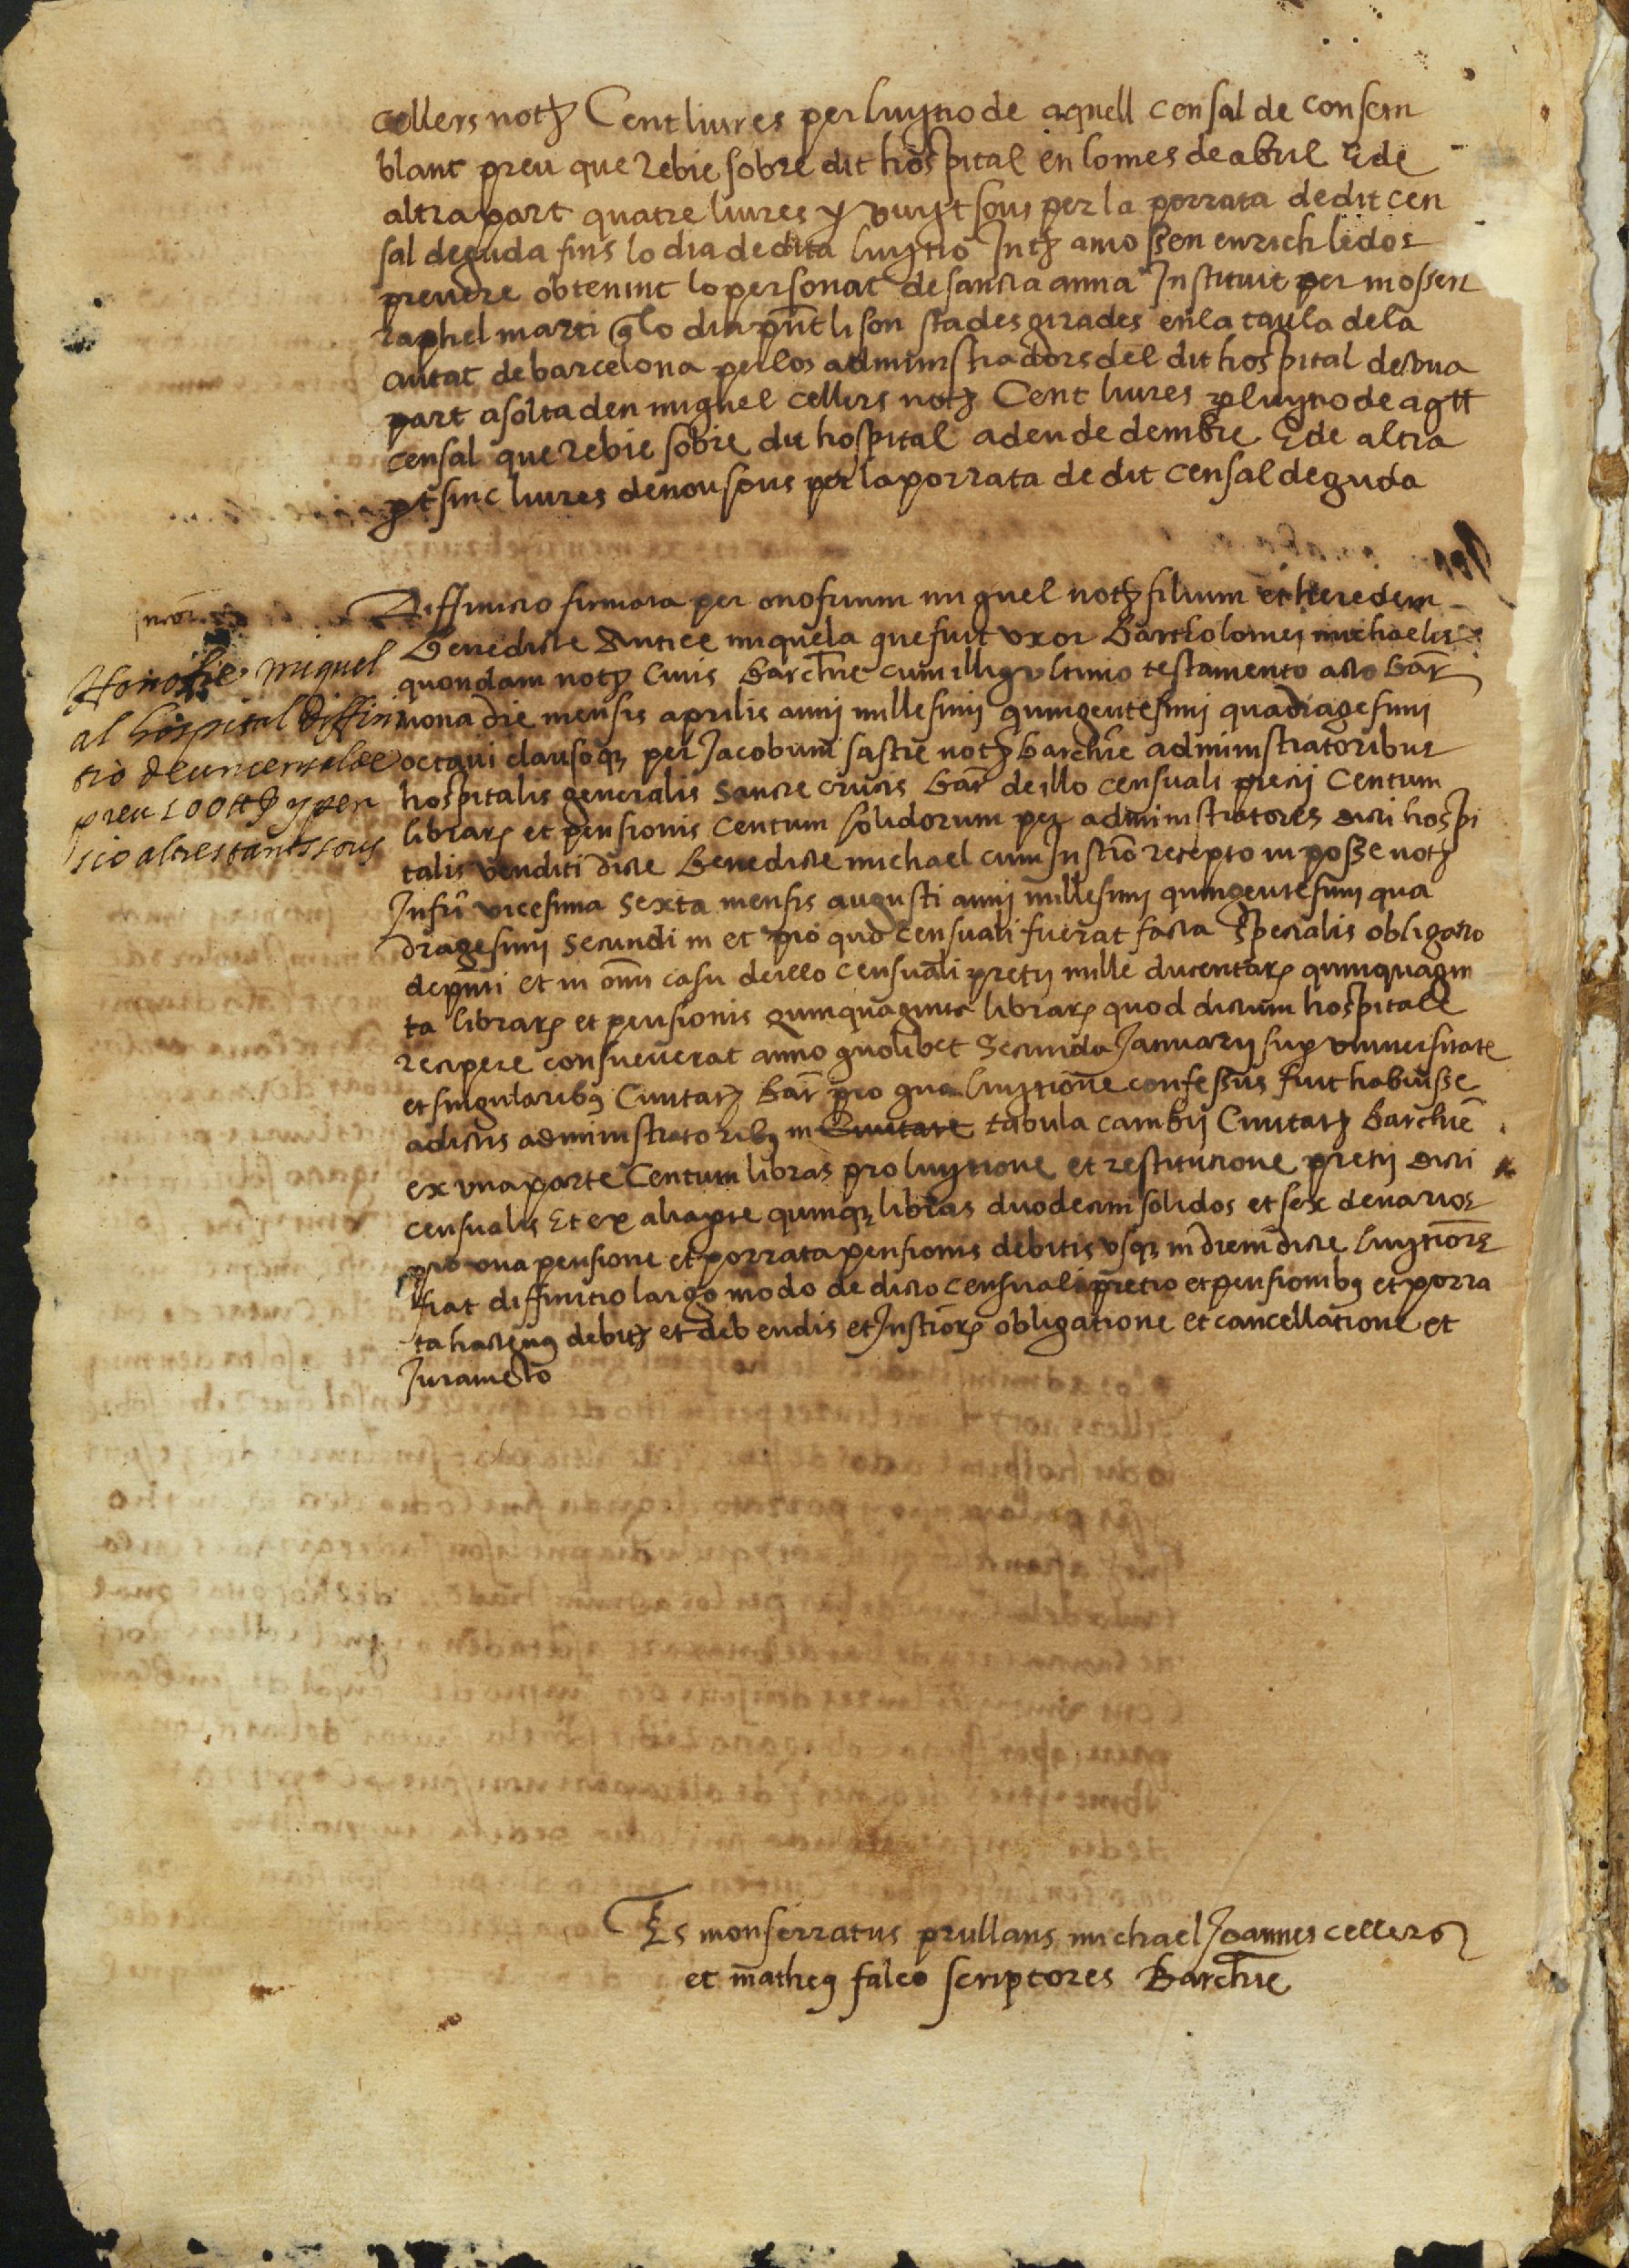 cellers notꝫ Cent liures per luytio de aquell censal de consem
blant preu que rebie sobre dit hospital en lo mes de abril E de
altra part quatre liures y vuyt sous per la porrata de dit cen
sal deguda fins lo dia de dita luytio Intꝫ a mossen enrich ledos
prevere obtenint lo personat de sancta anna Instituit per mossen
raphel marti q̃ lo dia pñt li son stades girades en la taula dela
ciutat de barcelona per los administradors del dit hospital de vna
part a solta den miquel cellers notꝫ Cent liures ꝑ luytio de aq̃ll
censal que rebie sobre dit hospital a den de dembre E de altra
ꝑt sinc liures denou sous per la porrata de dit censal deguda
Diffinicio firmata per onofrium miquel notꝫ filium et heredem
Benedicte Antice miquela que fuit vxor Bartholomei michaelis
quondam notꝫ Ciuis Barchñe cum illiꝰ vltimo testamento acto Barꝫ
nona die mensis aprilis anni millesimi quingentesimi quadragesimi
octaui clausoqꝫ per Jacobum sastre notꝫ barchñe administratoribus
hospitalis generalis Sancte crucis Barꝫ de illo censuali precij Centum
librarꝝ et pensionis Centum solidorum per administratores dicti hospi
talis venditi dicte Benedicte michael cum Instrõ recepto in posse notꝫ
Infrī vicesima Sexta mensis augusti anni millesimi quingentesimi qua
dragesimi Secundi in et pro quo censuali fuerat facta specialis obligatio
de pñti et in omī casu de illo censuali pretij mille ducentarꝝ quinquagin
ta librarꝝ et pensionis quinquaginta librarꝝ quod dictum hospitale
recipere consueuerat anno quolibet Secunda Januarij sup vniuersitate
et singularibꝰ Ciuitatꝫ Barꝫ pro qua luytione confessus fuit habuisse
a dictis administratoribꝰ in Ciuitate tabula cambij Ciuitatꝫ Barchñe
ex vna parte Centum libras pro luytione et restitucione pretij dicti
censualis Et ex alia pte quinqꝫ libras duodecim solidos et sex denarios
pro vna pensione et porrata pensionis debitis vsqꝫ in diem dicte luytionis
fiat diffinitio largo modo de dicto censuali pretio et pensionibꝰ et porra
ta hactenꝰ debitꝫ et debendis et Instrorꝝ obligatione et cancellatione et
Juramēto
Honofre miquel
al hospital diffini
tio de un censal de
preu 100 ₶ y pen
sio altres tants sous
Tēs monserratus prullans michael Joannes cellers
et matheꝰ falco scriptores Barchñe